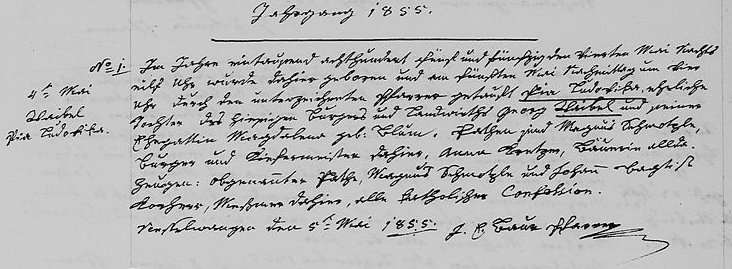 Jahrgang 1855.
No 1.
4te Mai
Waibel
Pia Ludovika.
Im Jahre eintausend achthundert fünf und fünfzig den vierten Mai Nachts
eilf Uhr wurde dahier geboren und am fünften Mai Nachmittag um vier
Uhr durch den unterzeichneten Pfarrer getauft Pia Ludovika, eheliche
Tochter des hiesigen Bürgers und Landwirths Georg Waibel und seiner
Ehegattin Magdalena geb: Blum. Pathen sind Magnus Schmotzle,
Bürger und Küfermeister dahier, Anna Bäuerin allda.
Zeugen: obgenannter Pathe, Magnus Schmotzle und Johann Baptist
Meßmer dahier, alle katholischer Confession.
den 5te Mai 1855. Baur Pfarrer